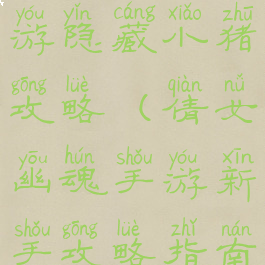 yóu yǐn cáng xiǎo zhū
游隐藏小猪
gōng lüè qiàn nǚ
攻略（倩女
yōu hún shǒu yóu xīn
幽魂手游新
shǒu gōng lüè zhǐ nán
手攻略指南